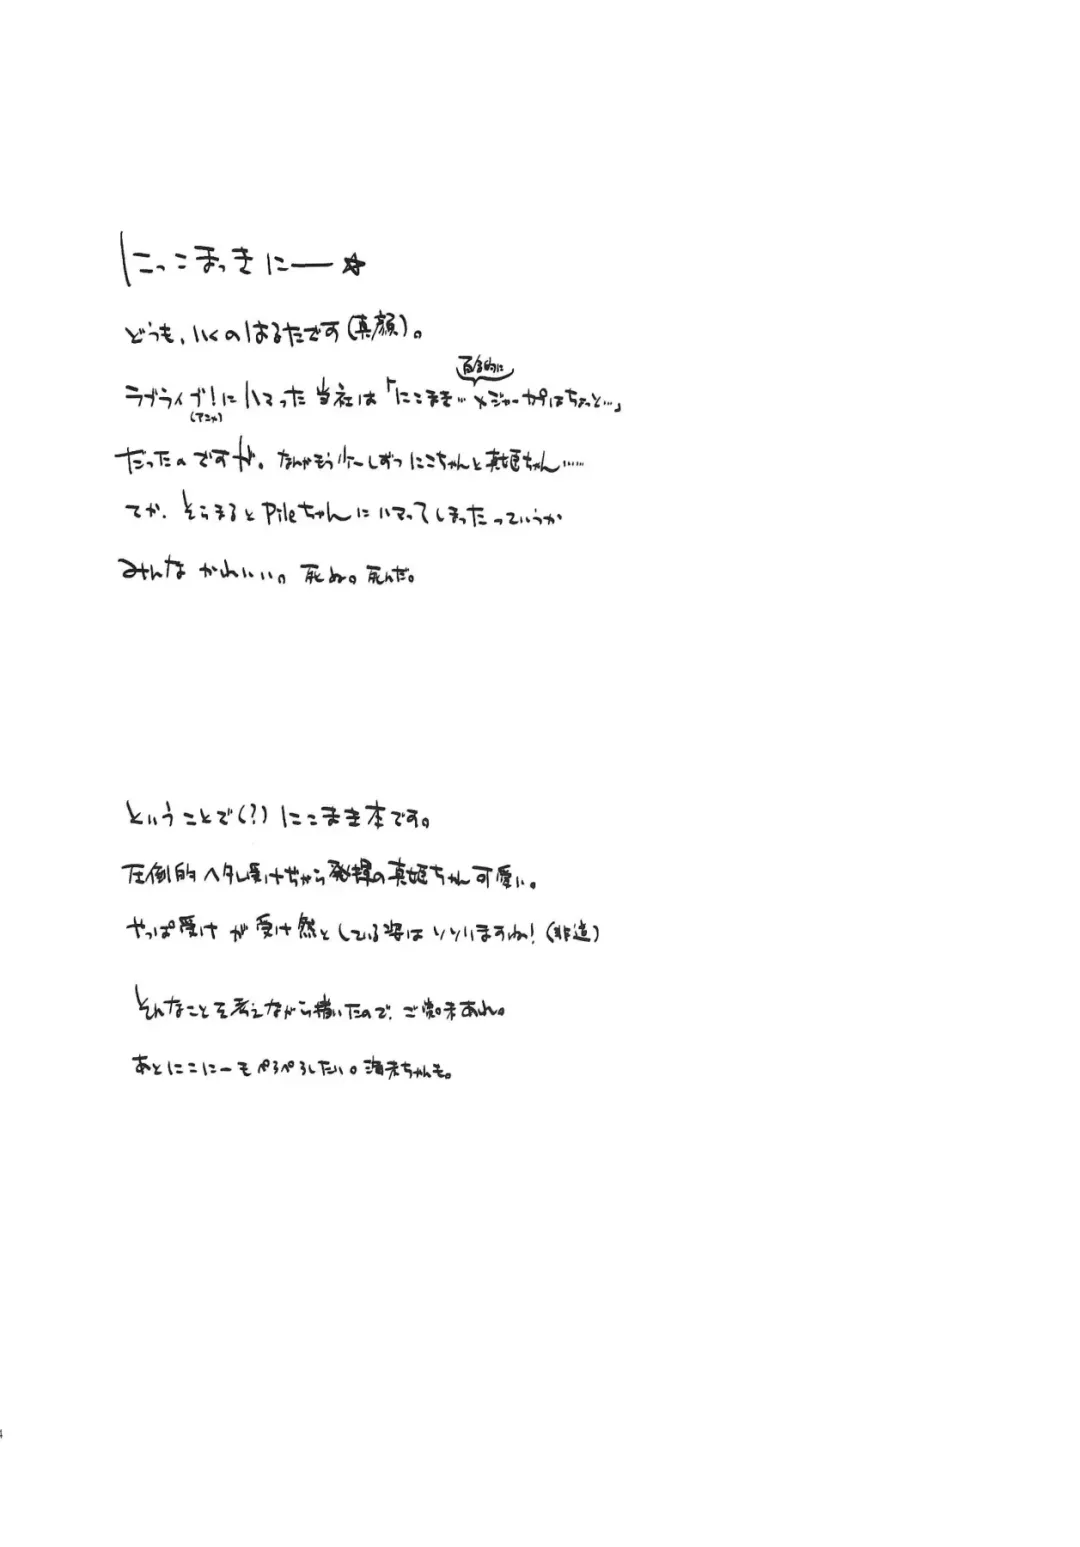 にっこまっきにー☆
どうも、いくのはるたです(真顔)。
百合的に
ラブライブ!にハマった当社は「にこまき…メジャーカプはちょっと…」
(アニメ)
だったのですが、なんかもう少ーしずつにこちゃんと真姫ちゃん……
てか、そらまるとPileちゃんにハマってしまったっていうか
みんなかわいい。死ぬ。死んだ。
ということで(?)にこまき本です。
圧倒的ヘタレ受けぢから発揮の真姫ちゃん可愛い。
やっぱ受けが受け然としている姿はいいいますね!(非道)
そんなことを考えながら描いたので、ご賞味あれ。
あとにこにーもぺろぺろしたい。海未ちゃんも。
4